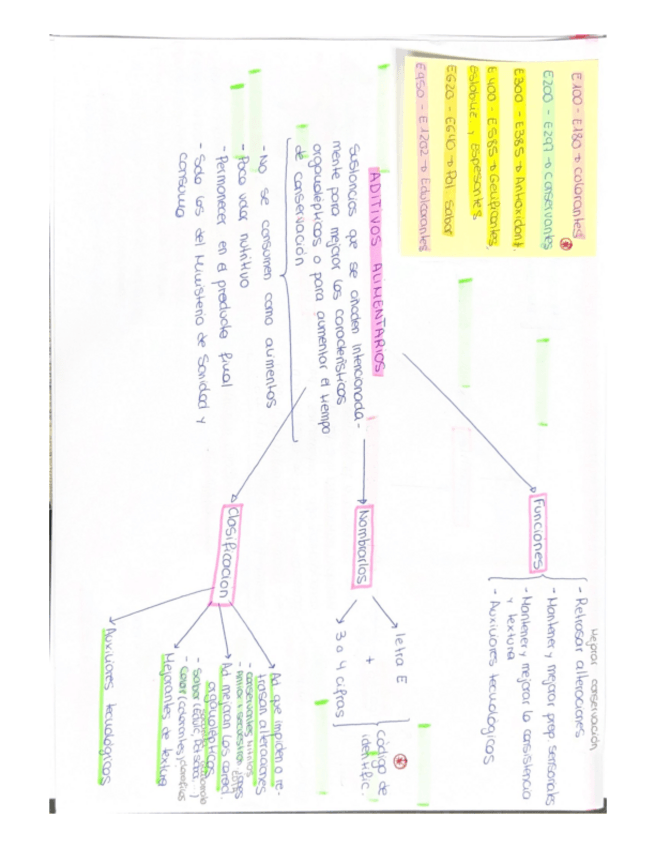 E100 - E180 → colorantes
E200 - E297 → Conservantes
E300 - E385 → Antioxidant.
E400 - E585 → Gelificantes,
estabiliz, espesantes
E620 - E640 → Pot sabor
E950 - E1202 → Edulcorantes
ADITIVOS ALIMENTARIOS
Sustancias que se añaden intencionada-
mente para mejorar las características
organolépticas o para aumentar el tiempo
de conservación
- No se consumen como alimentos
- Poco valor nutritivo
- Permanecer en el producto final
- Solo los del Ministerio de Sanidad y
consumo
Funciones
Mejorar conservación
- Retrasar alteraciones
- Mantener y mejorar prop sensoriales
- Mantener y mejorar la consistencia
y textura
- Auxiliares tecnológicos
Nombrarlos
letra E
+
3 o 4 cifras
código de
identific.
Clasificacion
Ad que impiden o re-
trasan alteraciones
- conservantes
Ad mejoran las caract.
organolépticas
- Sabor
- Color (colorantes
Mejorantes de textura
Auxiliares tecnológicos